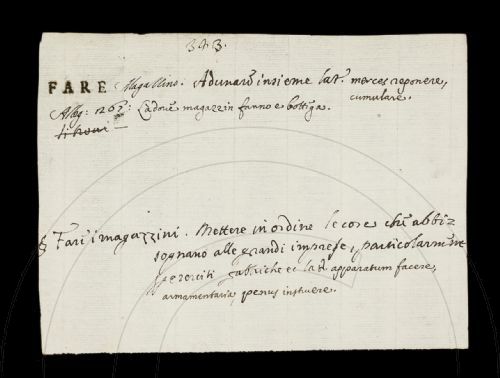 343.
FARE Magazzino. Adunare insieme lat. merces reponere,
cumulare.
Alleg: 126: Là dove magazzin fanno e bottega.
§ Fare i magazzini. Mettere in ordine le cose che abbi=
sognano alle grandi imprese, particolarmente
eserciti fabriche ec lat. apparatum facere,
armamentaria, penus instruere.